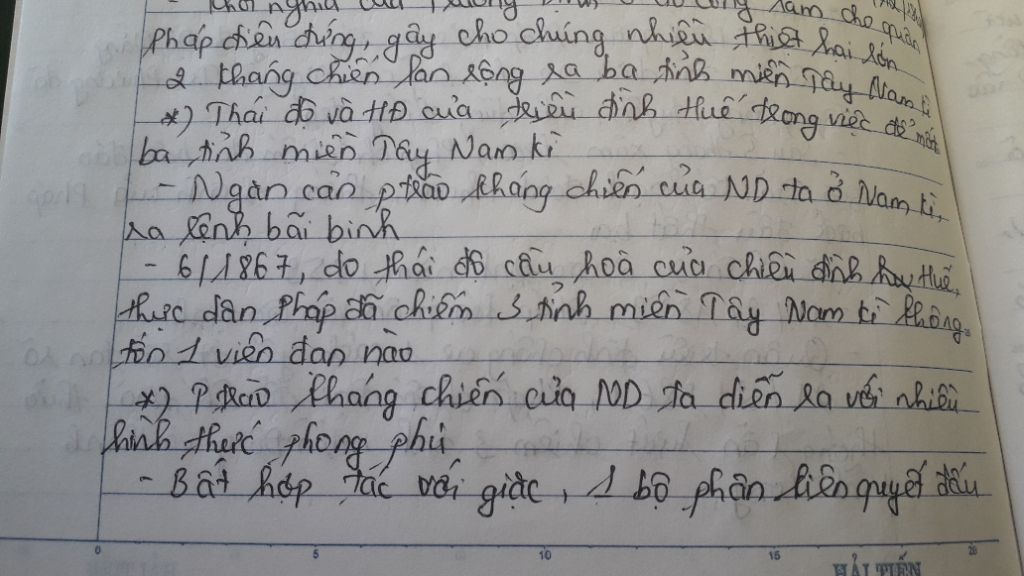 - Khởi nghĩa của Trương Định ở Gò Công làm cho quân
Pháp điêu đứng, gây cho chúng nhiều thiệt hại lớn
2 Kháng chiến lan rộng ra ba tỉnh miền Tây Nam kì
*) Thái độ và HĐ của triều đình Huế trong việc để mất
ba tỉnh miền Tây Nam kì
- Ngăn cản ptrào kháng chiến của ND ta ở Nam kì,
ra lệnh bãi binh
- 6/1867, do thái độ cầu hoà của chiều đình Huế,
thực dân Pháp đã chiếm 3 tỉnh miền Tây Nam kì không
tốn 1 viên đạn nào
*) Ptrào kháng chiến của ND ta diễn ra với nhiều
hình thức phong phú
- Bất hợp tác với giặc, 1 bộ phận kiên quyết đấu
0 5 10 15 20
HẢI TIẾN